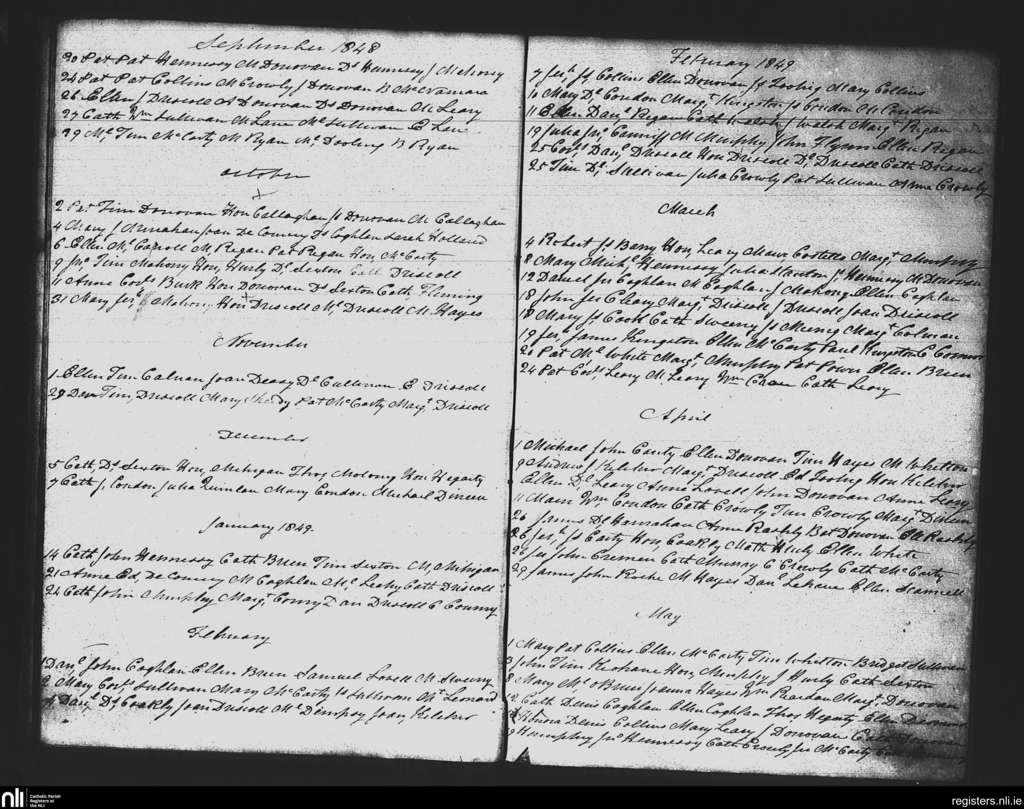 September 1848
20 Pat Pat Hennessy M Donovan Ds Hennessy J Mahony
24 Pat Pat Collins M Crowly J Donovan B McNamara
26 Ellen J Driscoll A Donovan Ds Donovan M Leary
27 Cath Wm Sullivan M Lane Ml Sullivan E Lane
29 Ml Tim McCarty M Ryan Ml Dooling B Ryan
October
2 Pat Tim Donovan Hon Callaghan Js Donovan M Callaghan
4 Mary J Minahan Joan De Courcy Ds Coghlan Sarah Holland
6 Ellen Ml Carroll M Regan Pat Regan Hon McCarty
9 Jno Tim Mahony Hon Hurly Ds Sexton Driscoll
11 Anne Cors Burk Hon Donovan Ds Sexton Cath Fleming
31 Mary Jer Mahony Hon Driscoll Ml Driscoll M Hayes
November
1 Ellen Tim Calnan Joan Deasy Dl Cullinan E Driscoll
29 Tim Driscoll Mary Pat McCarty Margt Driscoll
December
5 Cath Ds Sexton Hon Mehigan Thos Molony Hon Hegarty
7 Cath J Condon Julia Quinlan Mary Condon Michael Dineen
January 1849
14 Cath John Hennessy Cath Brien Tim Sexton M Mehigan
21 Anne Ed De Courcy M Coghlan Ml Leahy Cath Driscoll
24 Cath John Murphy Margt Driscoll C
February
1 Danl John Coghlan Ellen Brien Samuel Lovell M Sweeny
2 Mary Cors Sullivan Mary McCarty Js Sullivan Mt Leonard
4 Danl Ds Coakly Joan Driscoll Ml Dempsy Joan Keleher
February 1849
7 Jerh Js Collins Ellen Donovan Js Toohig Mary Collins
10 Mary Dl Condon Margt Kingston Js Condon M Condon
11 Ellen Danl Regan Cath Walsh J Walsh Margt Regan
19 Julia Jno Canniff M Murphy John Flynn Ellen Regan
25 Cors Danl Driscoll Hon Driscoll Dl Driscoll Cath Driscoll
25 Tim Ds Sullivan Julia Crowly Pat Sullivan Anne Crowly
March
4 Robert Js Barry Hon Leary Maur Costello Margt Murphy
8 Mary Michl Hennessy Julia Stanton Js Hennessy M Donovan
12 Daniel Jer Coghlan M Coghlan J Mahony Ellen Coghlan
18 John Jer Cleary Margt Driscoll J Driscoll Joan Driscoll
18 Mary Js Cook Cath Sweeny Js Margt Colman
19 Jer James Kingston Ellen McCarty Paul Kingston C Connor
20 Pat Ml White Margt Murphy Pat Power Ellen Brien
24 Pat Cors Leary M Leary Wm Chaun Cath Leary
April
1 Michael John Carty Ellen Donovan Tim Hayes M Whetton
9 Andrew J Keleher Margt Driscoll Ed Toohig Hon Keleher
Ellen Dl Leary Anne Lovell John Donovan Anne Leary
11 Wm Condon Cath Crowly Tim Crowly Margt
26 James Dl Hanrahan Anne Raskly Bat Donovan
26 Jerh Js Carty Hon Coakly Math Hurly Ellen White
29 Jer John Cremen Cath Murray C Crowly Cath McCarty
29 James John Roche M Hayes Danl Lehane Ellen Scannell
May
1 Mary Pat Collins Ellen McCarty Tim Whetton Bridget Sullivan
3 John Tim Keohane Hon Murphy J Hurly Cath Sexton
8 Mary Ml OBrien Joanna Hayes Wm Reardon Margt Donovan
Cath Denis Coghlan Ellen Coghlan Thos Hegarty Ellen
Honora Denis Collins Mary Leary J Donovan
Humphry Jno Hennessy Cath Crowly Jno McCarty
nli
Catholic Parish
Registers at
the NLI
registers.nli.ie